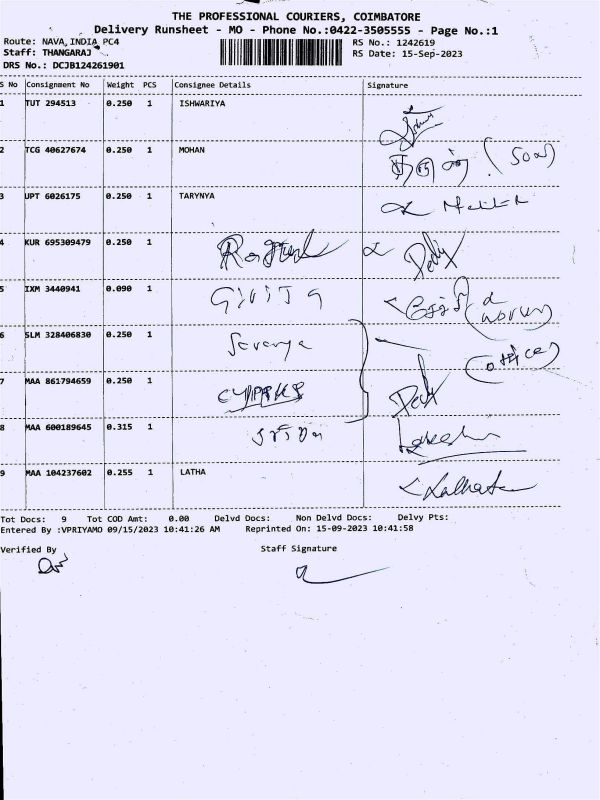 THE PROFESSIONAL COURIERS, COIMBATORE
Delivery Runsheet - MO - Phone No.:0422-3505555 - Page No.:1
Route: NAVA,INDIA PC4 RS No.: 1242619
Staff: THANGARAJ RS Date: 15-Sep-2023
DRS No.: DCJB124261901
S No Consignment No Weight PCS Consignee Details Signature
1 TUT 294513 0.250 1 ISHWARIYA
2 TCG 40627674 0.250 1 MOHAN (Son)
3 UPT 6026175 0.250 1 TARYNYA
4 KUR 695309479 0.250 1
5 IXM 3440941 0.090 1 GIRIJA
6 SLM 328406830 0.250 1 Saranya (office)
7 MAA 861794659 0.250 1
8 MAA 600189645 0.315 1
9 MAA 104237602 0.255 1 LATHA
Tot Docs: 9 Tot COD Amt: 0.00 Delvd Docs: Non Delvd Docs: Delvy Pts:
Entered By :VPRIYAMO 09/15/2023 10:41:26 AM Reprinted On: 15-09-2023 10:41:58
Verified By Staff Signature